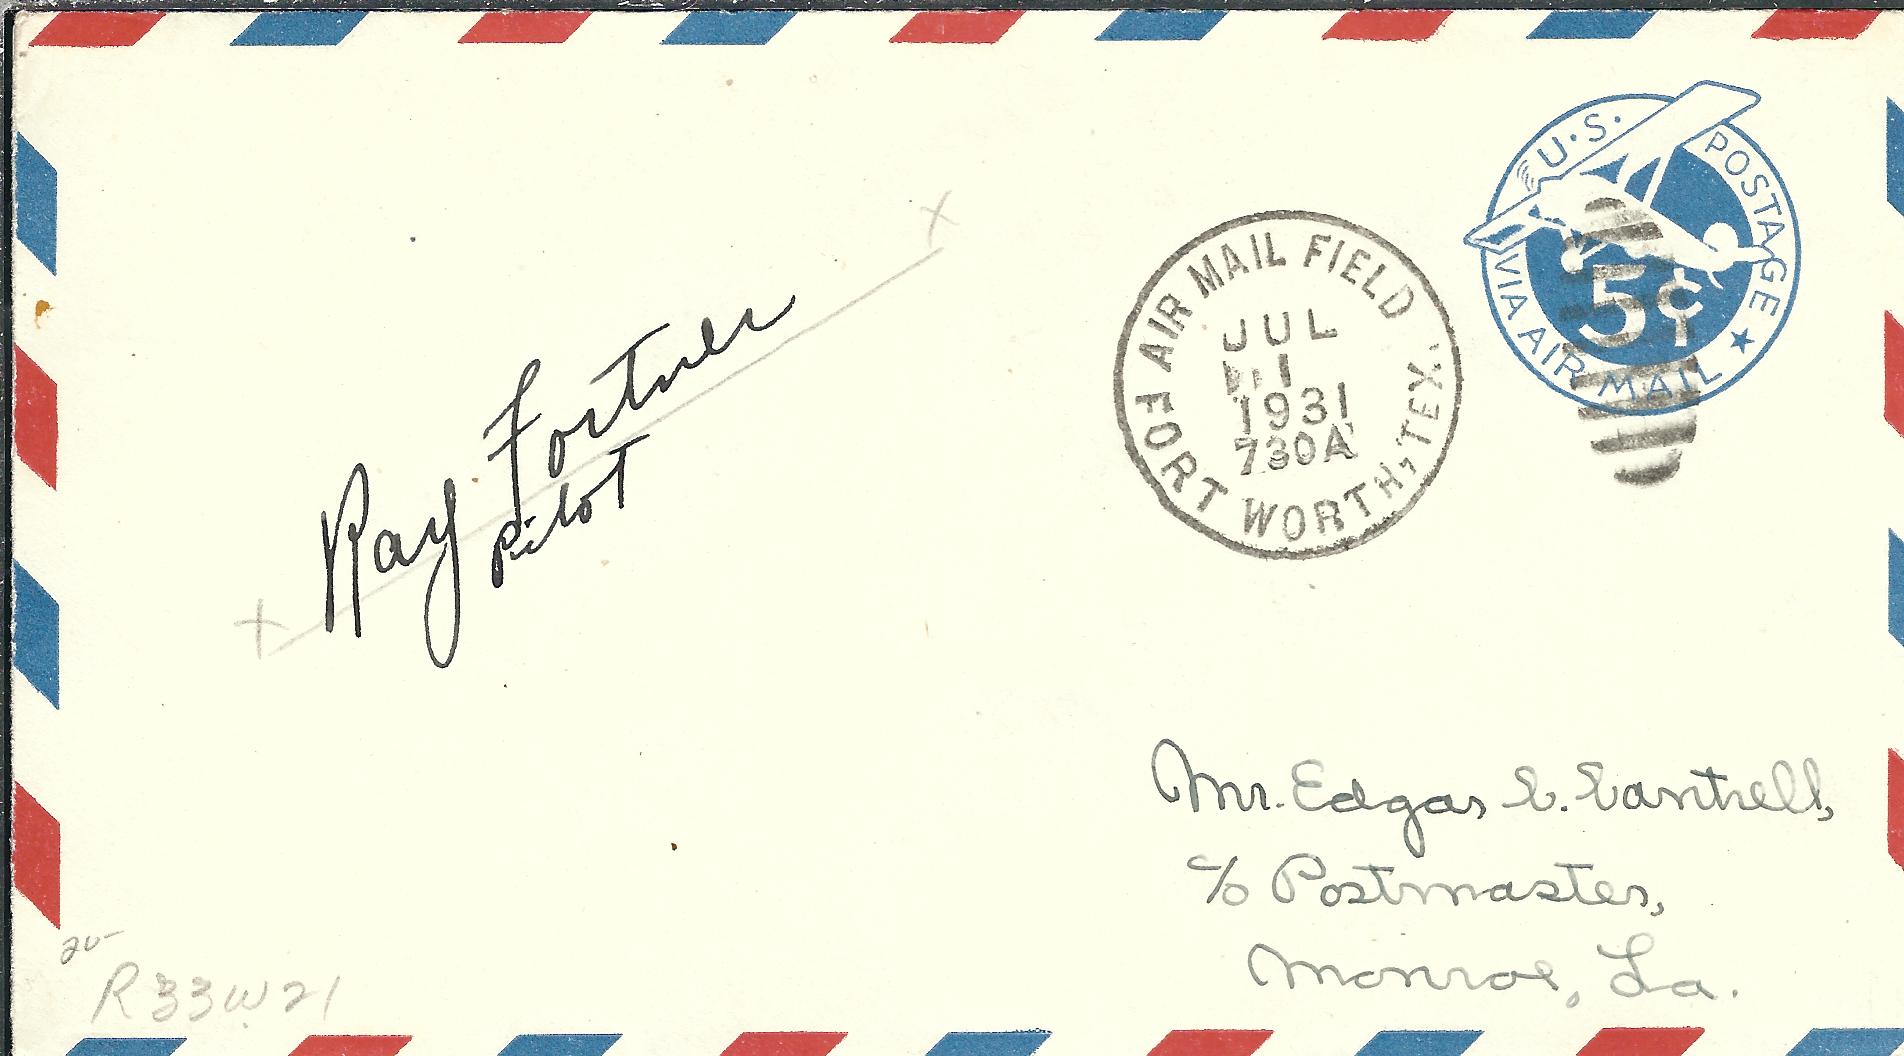 U.S. POSTAGE
5¢
VIA AIR MAIL
AIR MAIL FIELD
JUL
1
1931
730A
FORT WORTH, TEX.
Ray Fortner
Pilot
Mr. Edgar E. Cantrell,
c/o Postmaster,
Monroe, La.
20-
R33W21